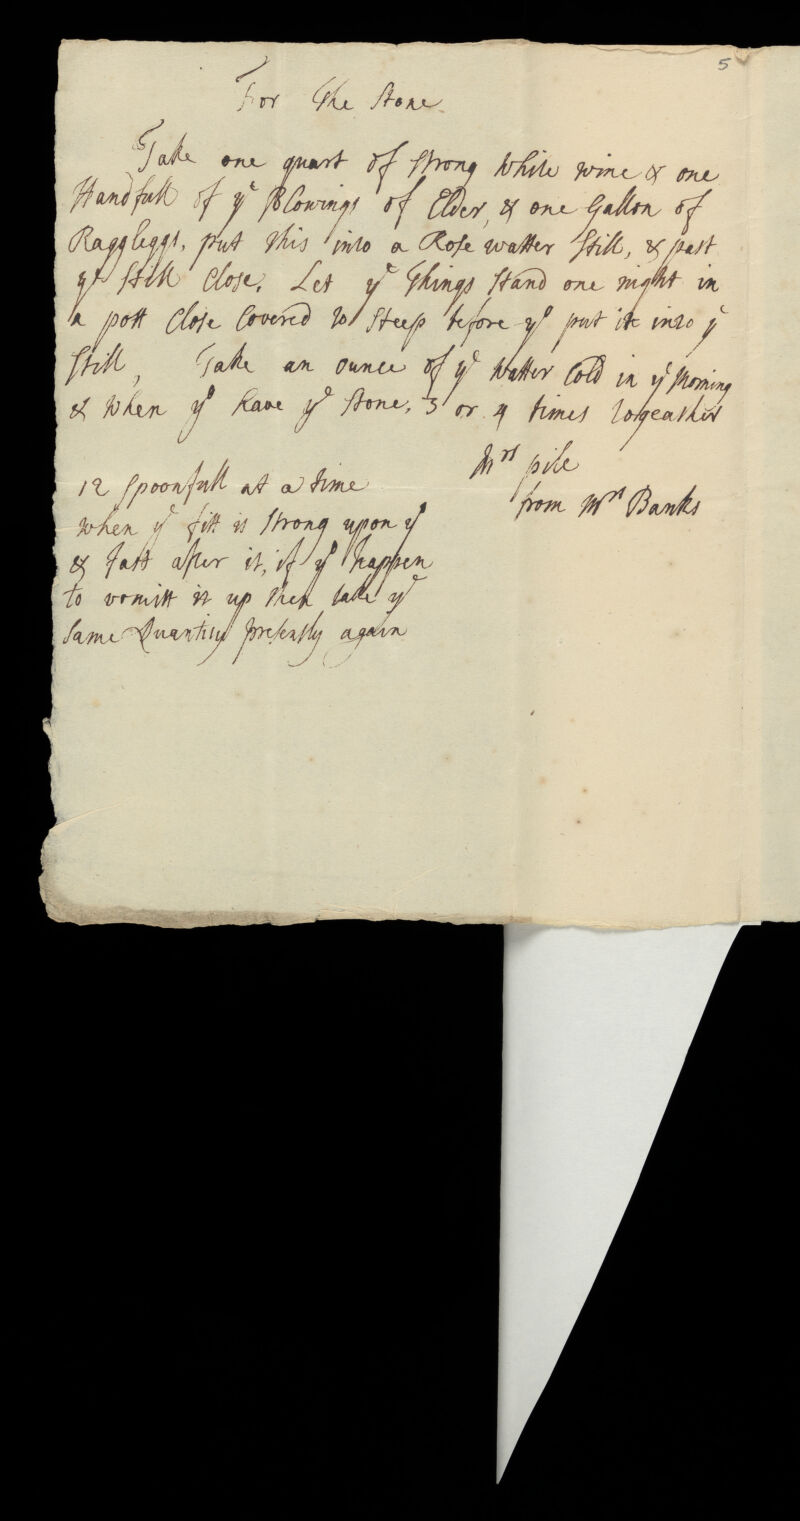 5
For The Stone
Take one quart of Strong White wine & one
Handfull of yͤ Blowings of Elder, & one Gallon of
Raggleggs, put this into a Rose watter Still, & past
yͤ Still Close, Let yͤ Things Stand one night in
a pott Close Covered to Steep before yͧ put it into yͤ
Still, Take an ounce of yͤ Watter Cold in yͤ Morning
& when yͧ have yͤ Stone, 3 or 4 times togeather
Mrs pile
from Mrs Banks
12 Spoonfull at a time
when yͤ fitt is Strong upon yͧ
& fast after it, if yͧ happen
to vomitt it up then take yͤ
Same Quantity presently again